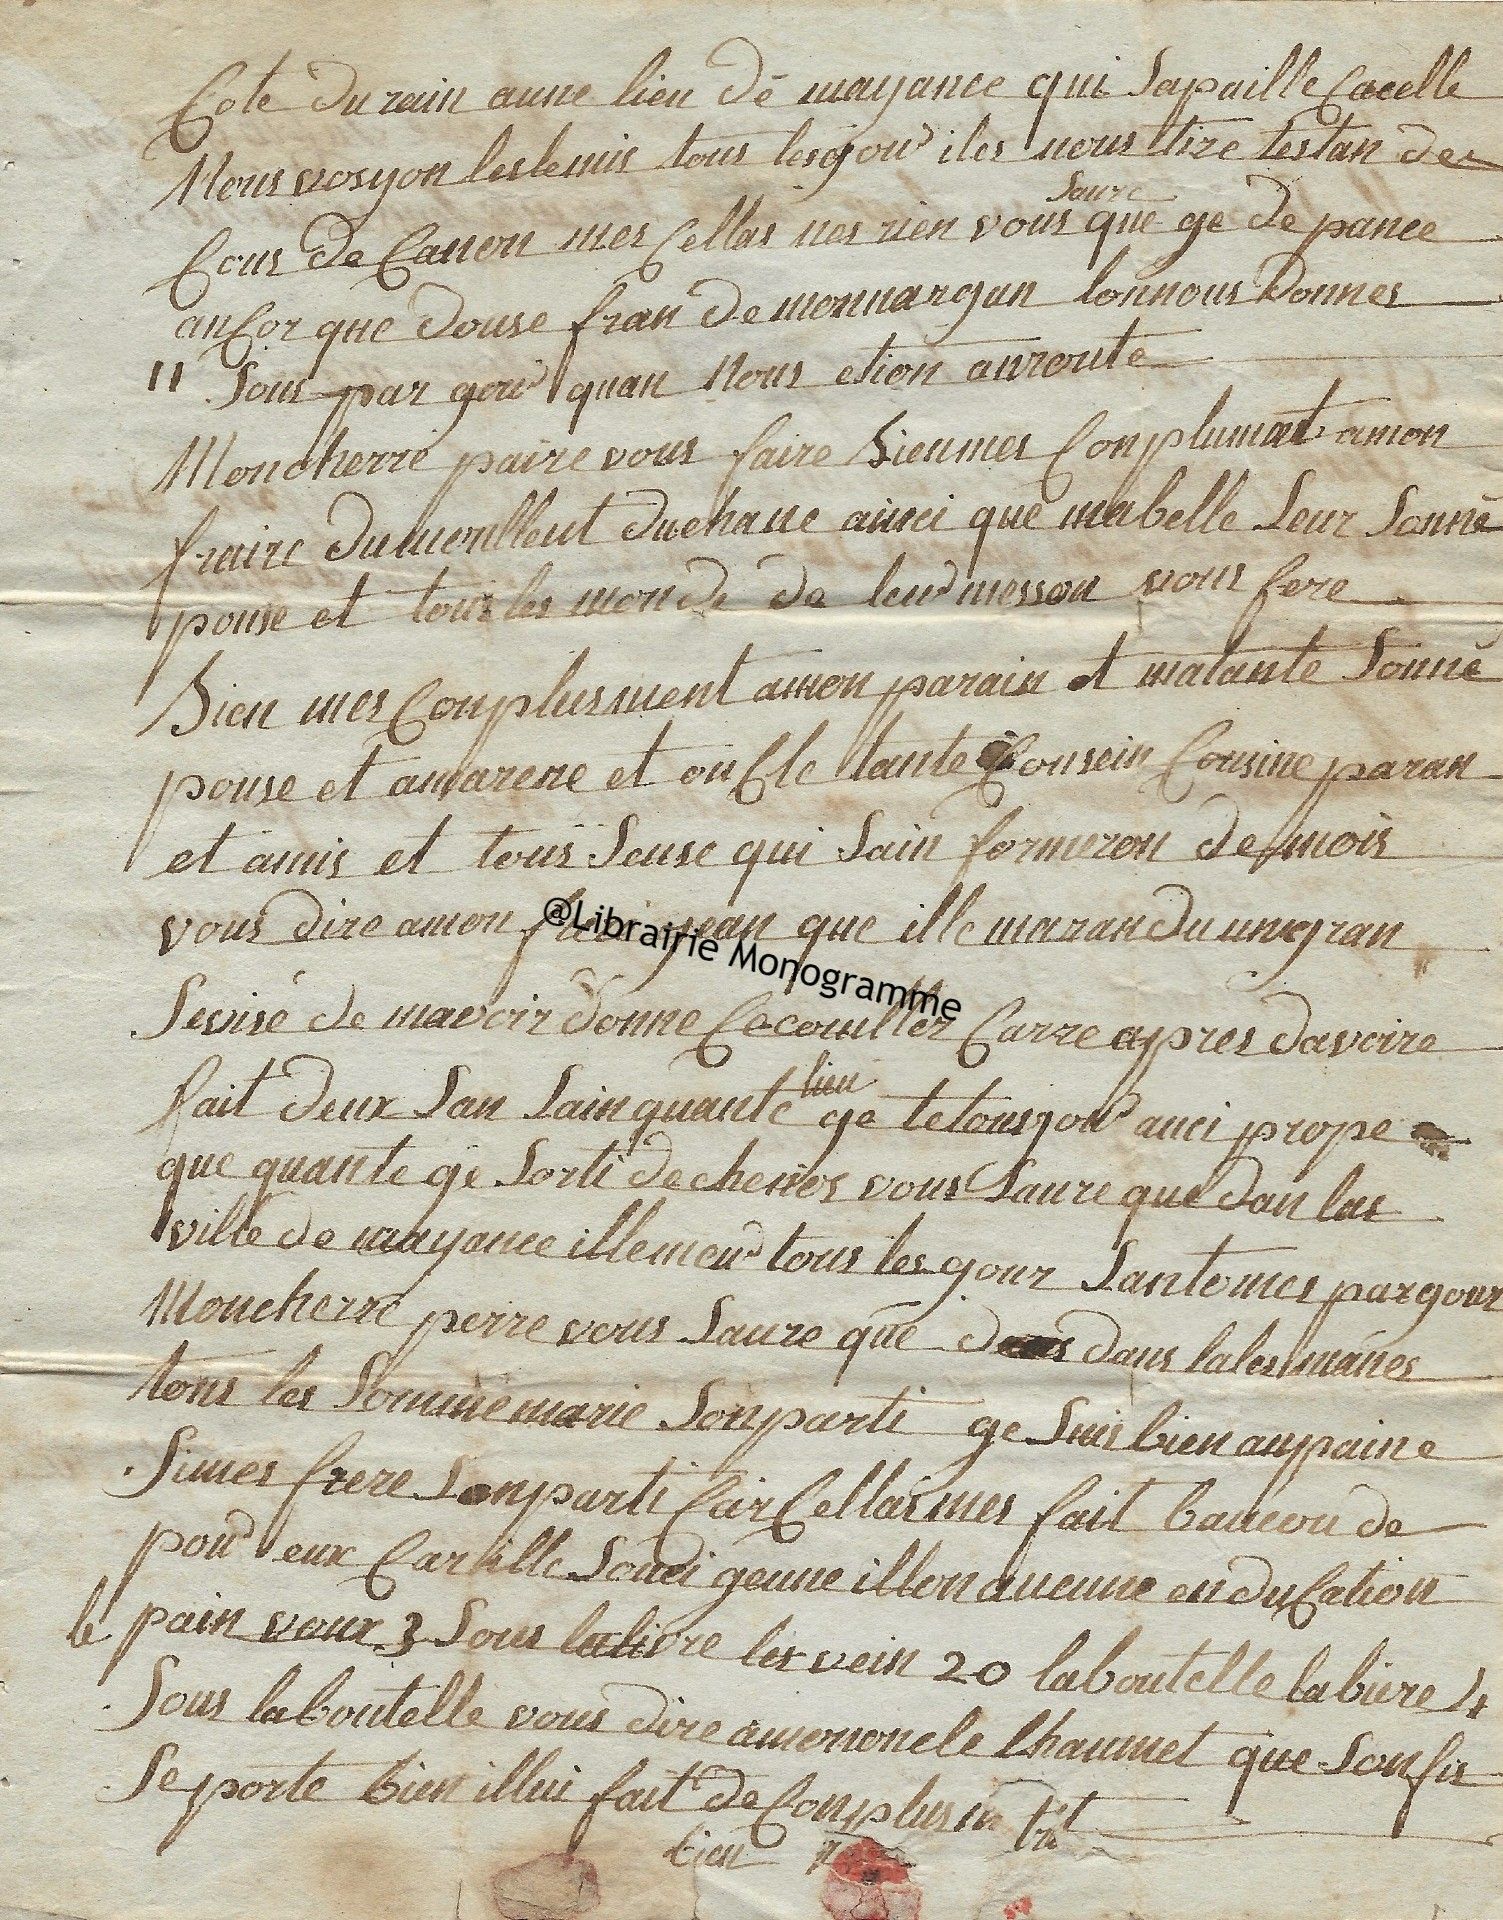 Cote du rain aune lieu de mayance qui sapaille Cacelle
Nous vosyon les lemis tous les gour iles nous tire testan de
Cous de Canon mes Cellas nes rien vous saure que ge de pance
an Cor que douse fran de monnargan lonnous donnes
11 sous par gour quan Nous etion anroute
Moncherre paire vous faire bien mes Conplumat amon
fraire dumoullent duchane ainci que mabelle seur sonne
pouse et tous les monde de leur messon vous fere
bien mes Conplusment amon parain et matante sonne
pouse et amarene et on Cle tante Cousein Cousine paran
et amis et tous seuse qui sain formeron de mois
vous dire amon jean que ille maran du un gran
servise de mavoir donne Ce couiller Carre apres davoire
fait deux san sainquante lieu ge te tousjour auci prope
que quante ge sorti de chenos vous saure que dan las
ville de mayance illemeur tous les gour santomes par gour
Moncherre perre vous saure que dans lalesmanes
tous les sommemarie sonparti ge suis bien anpaine
simes frere sonparti Car Cellasmes fait baucou de
pour eux Car ille souci geune illon aucune en du Cation
le pain vaux 3 sous la livre les vein 20 laboutelle la biere 4
sous laboutelle vous dire amononcle lhaumet que son fis
se porte bien illui fait de Conplusm
bien
@Librairie Monogramme